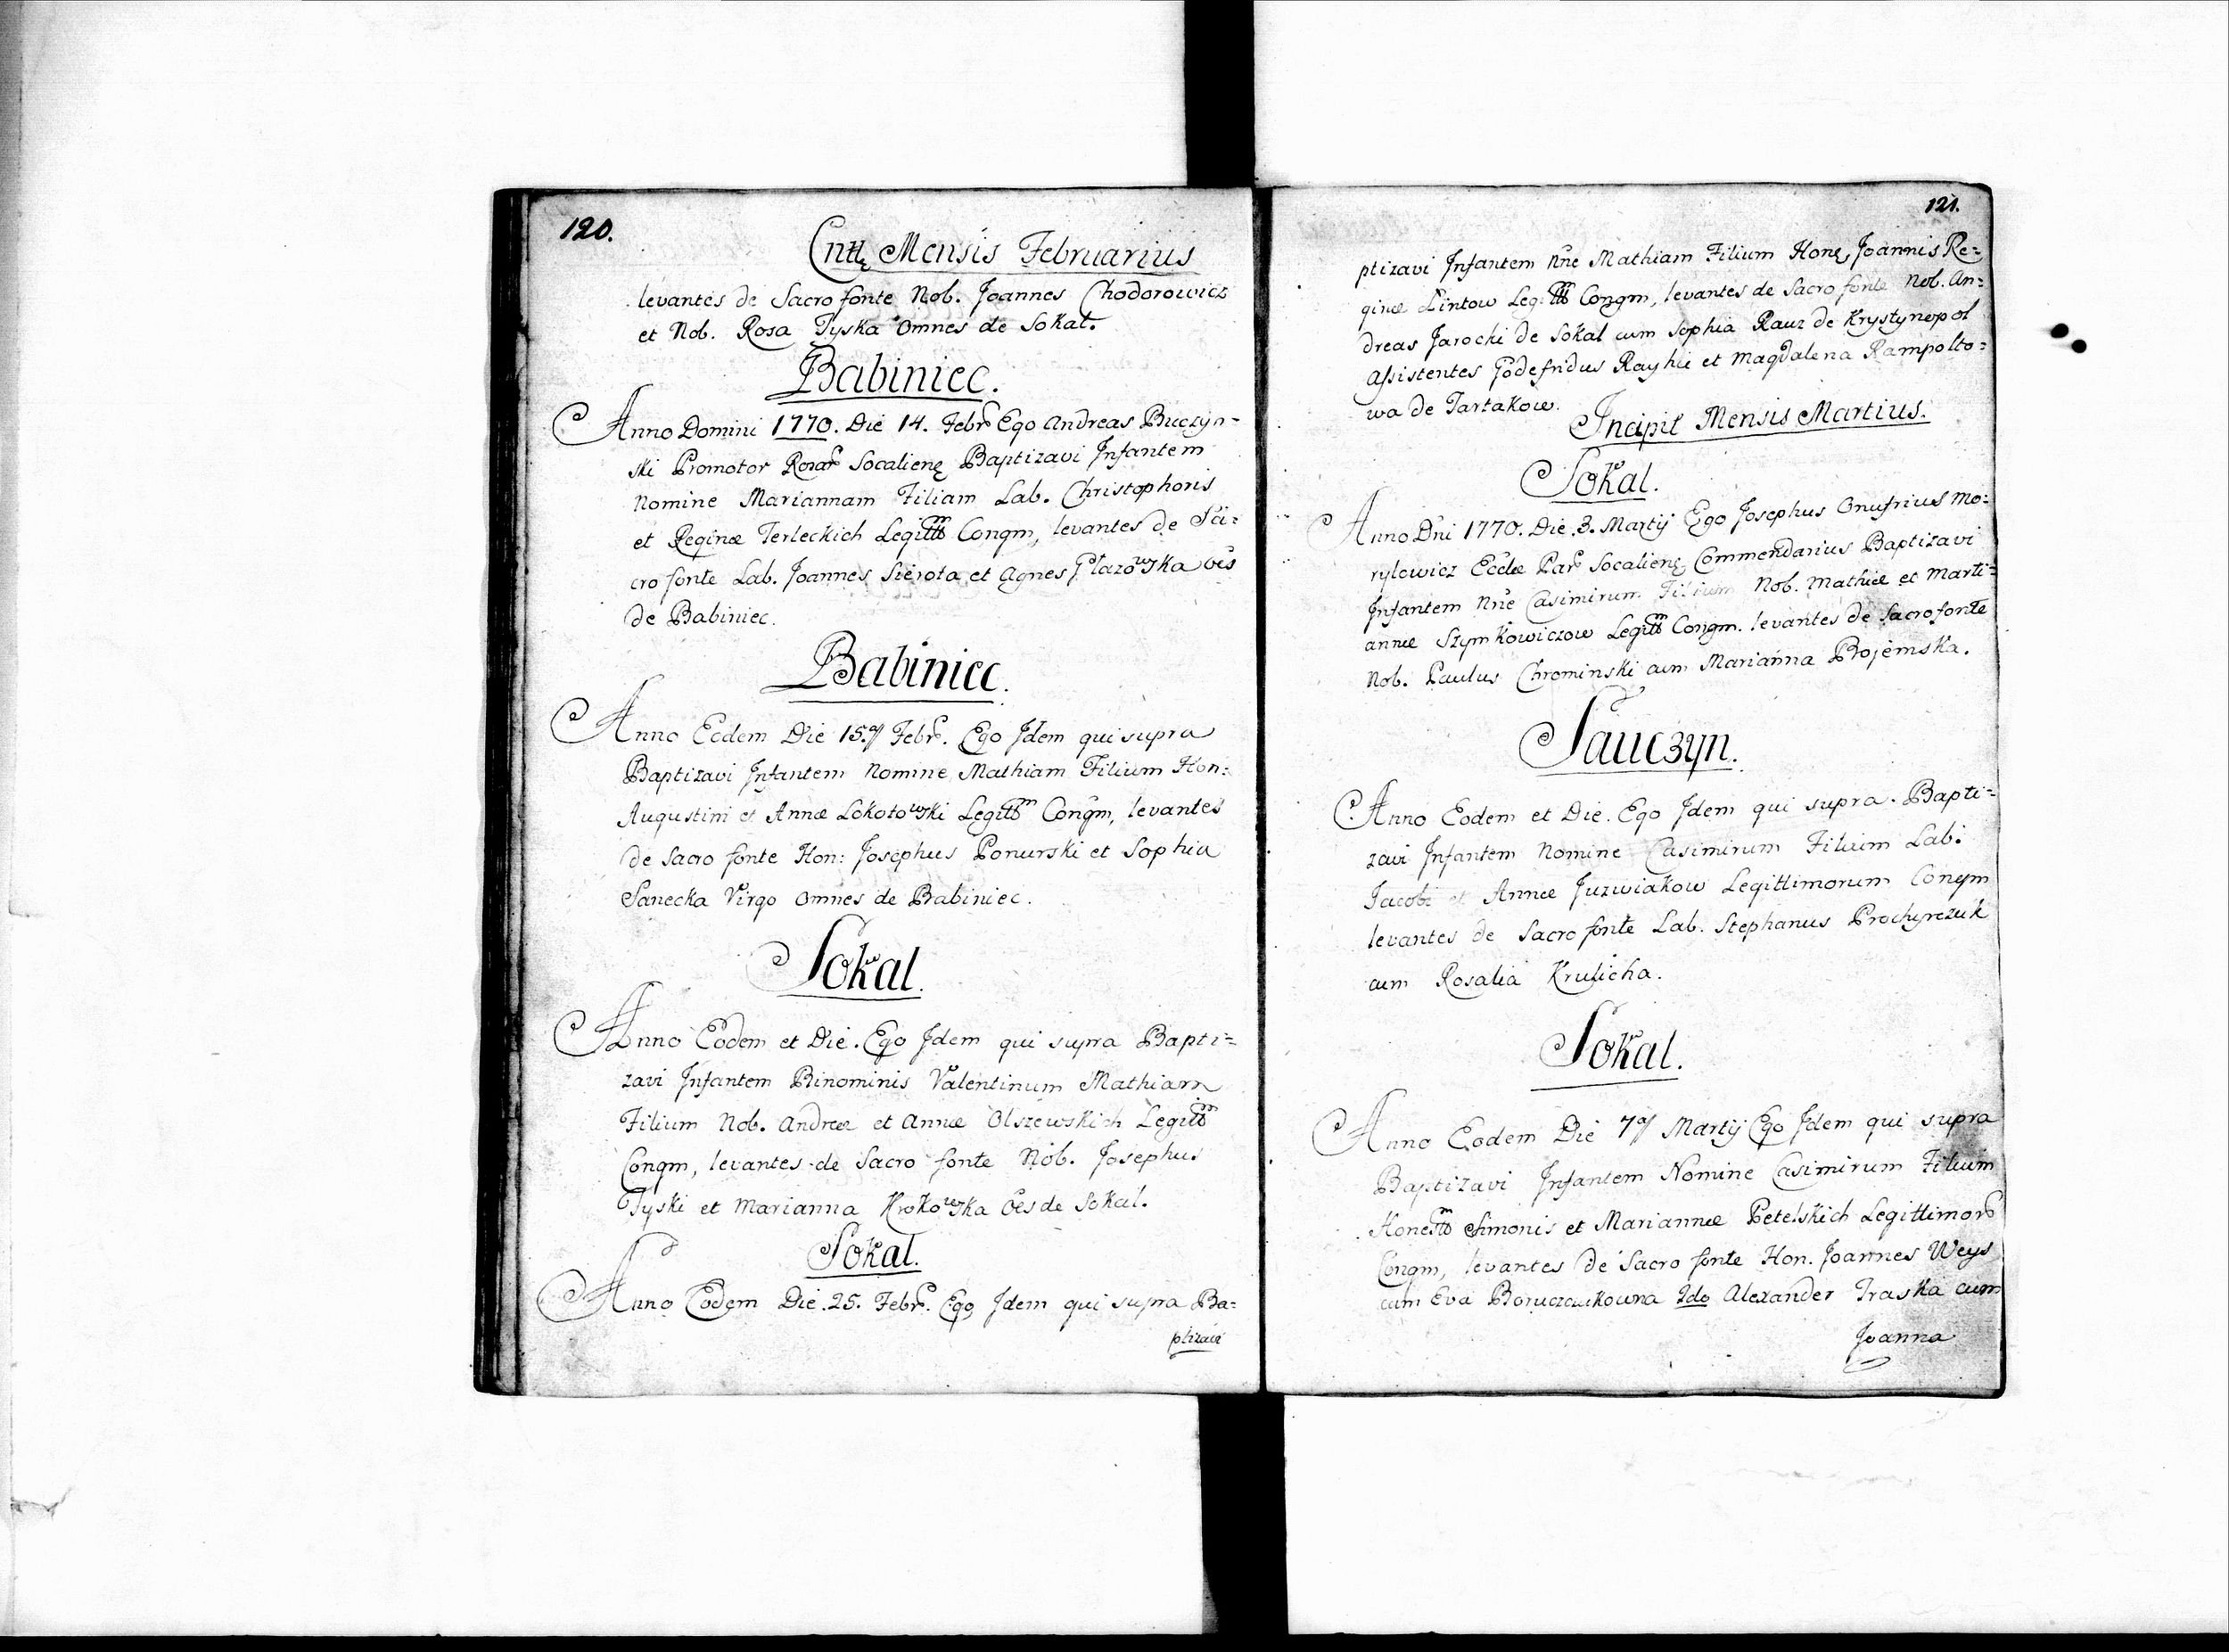 120.
Cnttę Mensis Februarius
levantes de Sacro fonte Nob. Joannes Chodorowicz
et Nob. Rosa Tyska Omnes de Sokal.
Babiniec.
Anno Domini 1770. Die 14. Febr Ego Andreas Buczyn-
ski Promotor Rosar Socalienę Baptizavi Infantem
Nomine Mariannam Filiam Lab. Christophoris
et Reginæ Terleckich Legittm Congm, levantes de Sa:
cro fonte Lab. Joannes Sierota et Agnes Głazowska oes
de Babiniec.
Babiniec.
Anno Eodem Die 15. Febr. Ego Idem qui supra
Baptizavi Infantem Nomine Mathiam Filium Hon:
Augustini et Annæ Lokotowski Legittm Congm, levantes
de Sacro fonte Hon: Josephus Ponurski et Sophia
Sanecka Virgo Omnes de Babiniec.
Sokal.
Anno Eodem et Die. Ego Idem qui supra Bapti=
zavi Infantem Binominis Valentinum Mathiam
Filium Nob. Andreæ et Annæ Olszewskich Legittm
Congm, levantes de Sacro fonte Nob. Josephus
Tyski et Marianna Krokowska oes de Sokal.
Sokal.
Anno Eodem Die. 25. Febr. Ego Idem qui supra Ba=
ptizavi
121.
ptizavi Infantem Nne Mathiam Filium Honę Joannis Re=
ginæ Lintow Leg. Congm, levantes de Sacro fonte Nob. An=
dreas Jarocki de Sokal cum Sophia Rauz de Krystynopol
Assistentes Godefridus Rayhie et Magdalena Rampolto=
wa de Tartakow.
Incipit Mensis Martius.
Sokal.
Anno Dni 1770. Die. 3. Martij Ego Josephus Onufrius Mo=
rylowicz Eccłæ Par Socalienę Commendarius Baptizavi
Infantem Nne Casimirum Filium Nob. Mathiæ et Marti=
annæ Szymkowiczow Legittm Congm. levantes de Sacro fonte
Nob. Paulus Chrominski cum Marianna Projemska.
Sauczyn.
Anno Eodem et Die. Ego Idem qui supra. Bapti=
zavi Infantem Nomine Casimirum Filium Lab:
Jacobi et Annæ Juzwiakow Legittimorum Congm
levantes de Sacro fonte Lab. Stephanus Prochyrczuk
cum Rosalia Krulicha.
Sokal.
Anno Eodem Die 7 Martij Ego Idem qui supra
Baptizavi Infantem Nomine Casimirum Filium
Honestm Simonis et Mariannæ Petelskich Legittimor
Congm, levantes de Sacro fonte Hon. Joannes Weys
cum Eva Boruczawkowna 2do Alexander Traska cum
Joanna